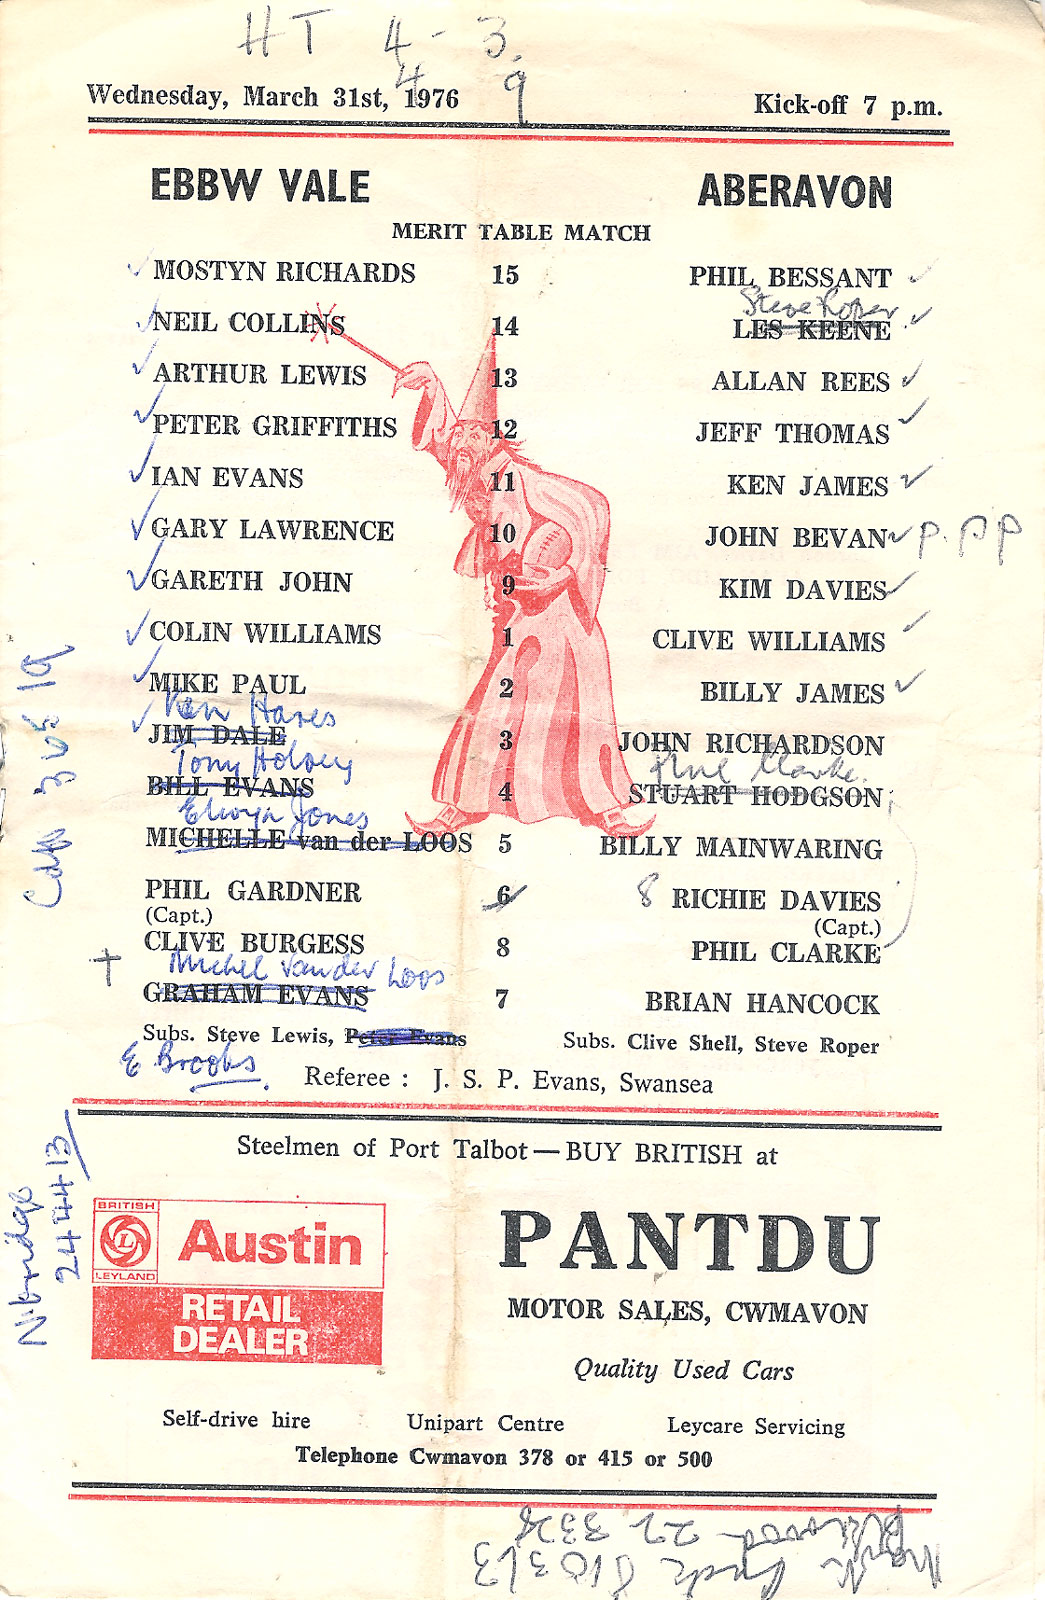 HT 4 - 3.
4 9
Wednesday, March 31st, 1976 Kick-off 7 p.m.
EBBW VALE ABERAVON
MERIT TABLE MATCH
MOSTYN RICHARDS 15 PHIL BESSANT
Steve Roper
NEIL COLLINS 14 LES KEENE
ARTHUR LEWIS 13 ALLAN REES
PETER GRIFFITHS 12 JEFF THOMAS
IAN EVANS 11 KEN JAMES
GARY LAWRENCE 10 JOHN BEVAN P. P P
GARETH JOHN 9 KIM DAVIES
COLIN WILLIAMS 1 CLIVE WILLIAMS
MIKE PAUL 2 BILLY JAMES
Ken Hares
JIM DALE 3 JOHN RICHARDSON
Tony Phil Clarke.
BILL EVANS 4 STUART HODGSON
Elwyn Jones
MICHELLE van der LOOS 5 BILLY MAINWARING
PHIL GARDNER 6 8 RICHIE DAVIES
(Capt.) (Capt.)
CLIVE BURGESS 8 PHIL CLARKE
Michel Vander Loos
GRAHAM EVANS 7 BRIAN HANCOCK
Subs. Steve Lewis, Peter Evans Subs. Clive Shell, Steve Roper
E Brooks
Referee : J. S. P. Evans, Swansea
Steelmen of Port Talbot—BUY BRITISH at
BRITISH
L
LEYLAND
Austin
RETAIL
DEALER
PANTDU
MOTOR SALES, CWMAVON
Quality Used Cars
Self-drive hire Unipart Centre Leycare Servicing
Telephone Cwmavon 378 or 415 or 500
N.bridge
244413